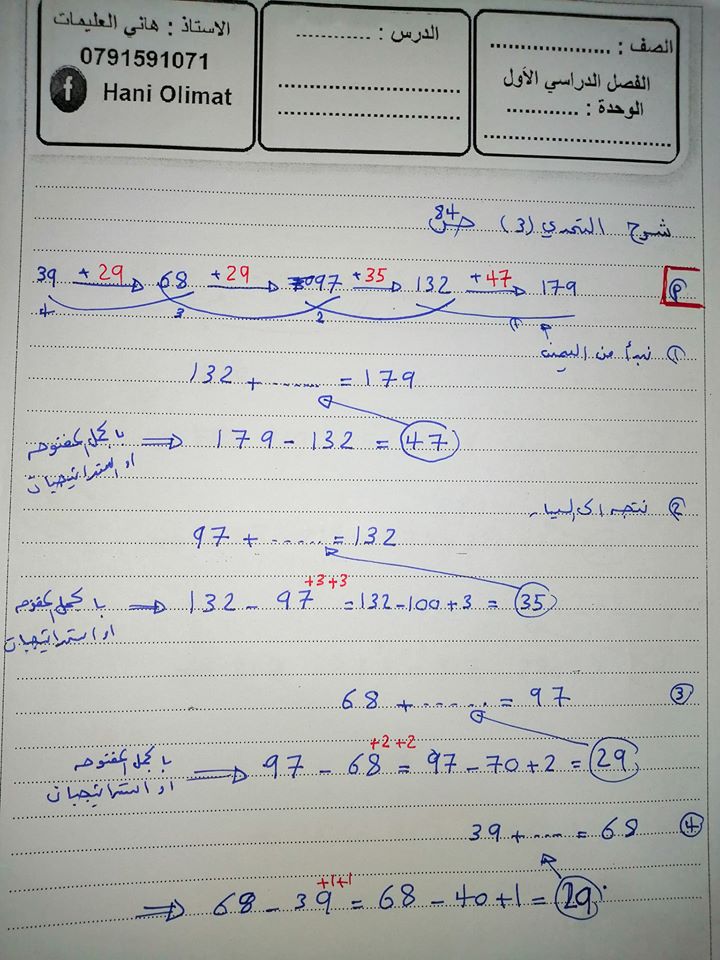 الصف : ....................
الفصل الدراسي الأول
الوحدة : ............
....................................
الدرس : ............
....................................
....................................
الاستاذ : هاني العليمات
0791591071
f Hani Olimat
شرح التحدي (3) ص 84
39 +29 → 68 +29 → 97 +35 → 132 +47 → 179
4 3 2 1
① نبدأ من اليمين
132 + ....... = 179
179 - 132 = 47
بالجمل المفتوحة
او استراتيجيات
② نتجه الى اليسار
97 + ....... = 132
132 - 97 +3 +3 = 132 - 100 + 3 = 35
بالجمل المفتوحة
او استراتيجيات
③
68 + ....... = 97
97 - 68 +2 +2 = 97 - 70 + 2 = 29
بالجمل المفتوحة
او استراتيجيات
④
39 + ..... = 68
⇒ 68 - 39 +1 +1 = 68 - 40 + 1 = 29